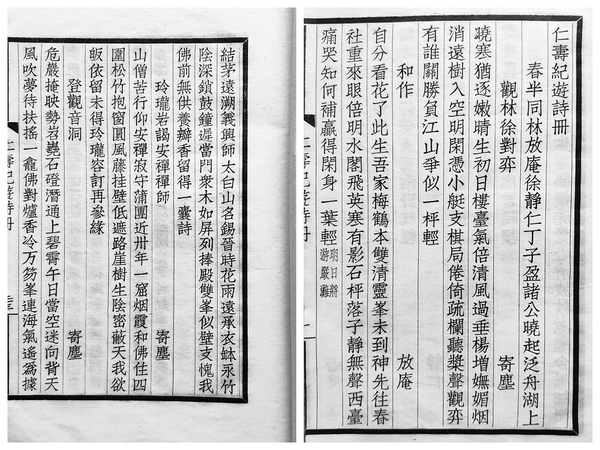 仁壽紀遊詩冊
春半同林放庵徐靜仁丁子盈諸公曉起泛舟湖上
觀林徐對弈 寄塵
曉寒猶逐嫩晴生初日樓臺氣倍清風過垂楊增嫵媚烟
消遠樹入空明閑憑小艇支棋局倦倚疏欄聽槳聲觀弈
有誰關勝負江山爭似一枰輕
和作 放庵
自分看花了此生吾家梅鶴本雙清靈峯未到神先往春
社重來眼倍明水閣飛英寒有影石枰落子靜無聲西臺
痛哭知何補贏得閑身一葉輕 明日將游嚴灘
結茅遠溯義興師太白山名錫晉時花雨遠承衣鉢永竹
陰深鎖鼓鐘遲當門衆木如屏列捧殿雙峯似壁支愧我
佛前無供養瓣香留得一囊詩
玲瓏岩謁安禪師 寄塵
山僧苦行仰安禪寂守蒲團近卅年一窟烟霞和佛住四
圍松竹抱窗圓風藤挂壁低遮路崖樹生陰密蔽天我欲
皈依留未得玲瓏容訂再參緣
登觀音洞 寄塵
危巖掩映勢岧嶤石磴潛通上碧霄午日當空迷向背天
風吹夢待扶搖一龕佛對爐香冷万笏峯連海氣遙爲據
仁壽紀遊詩冊